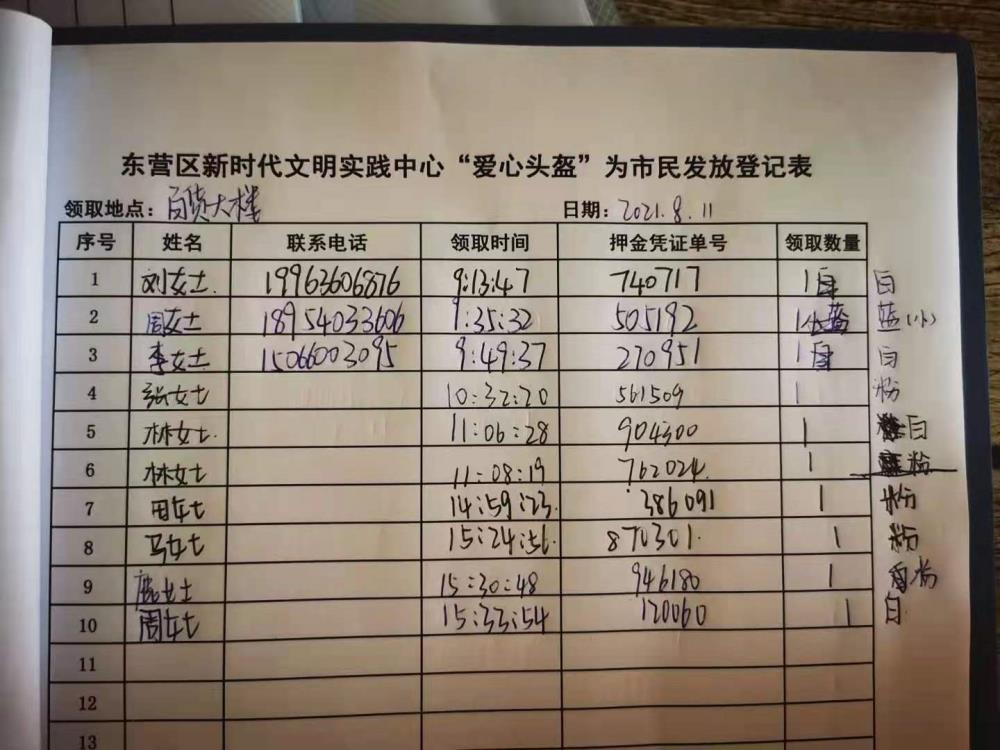 东营区新时代文明实践中心“爱心头盔”为市民发放登记表
领取地点：百货大楼 日期：2021.8.11
序号 姓名 联系电话 领取时间 押金凭证单号 领取数量
1 刘女士. 19963606876 9:13:47 740717 1 白
2 周女士 18954033606 9:35:32 505192 1 蓝(小)
3 李女士 15066003095 9:49:37 270951 1 白
4 张女士 10:32:20 561509 1 粉
5 林女士. 11:06:28 904300 1 白
6 林女士 11:08:19 762024. 1 粉
7 田女士 14:59:23. 386091 1 粉
8 马女士 15:24:56. 870301. 1 粉
9 女士 15:30:48 946180 1 粉
10 周女士 15:33:54 120060 1 白.
11
12
13